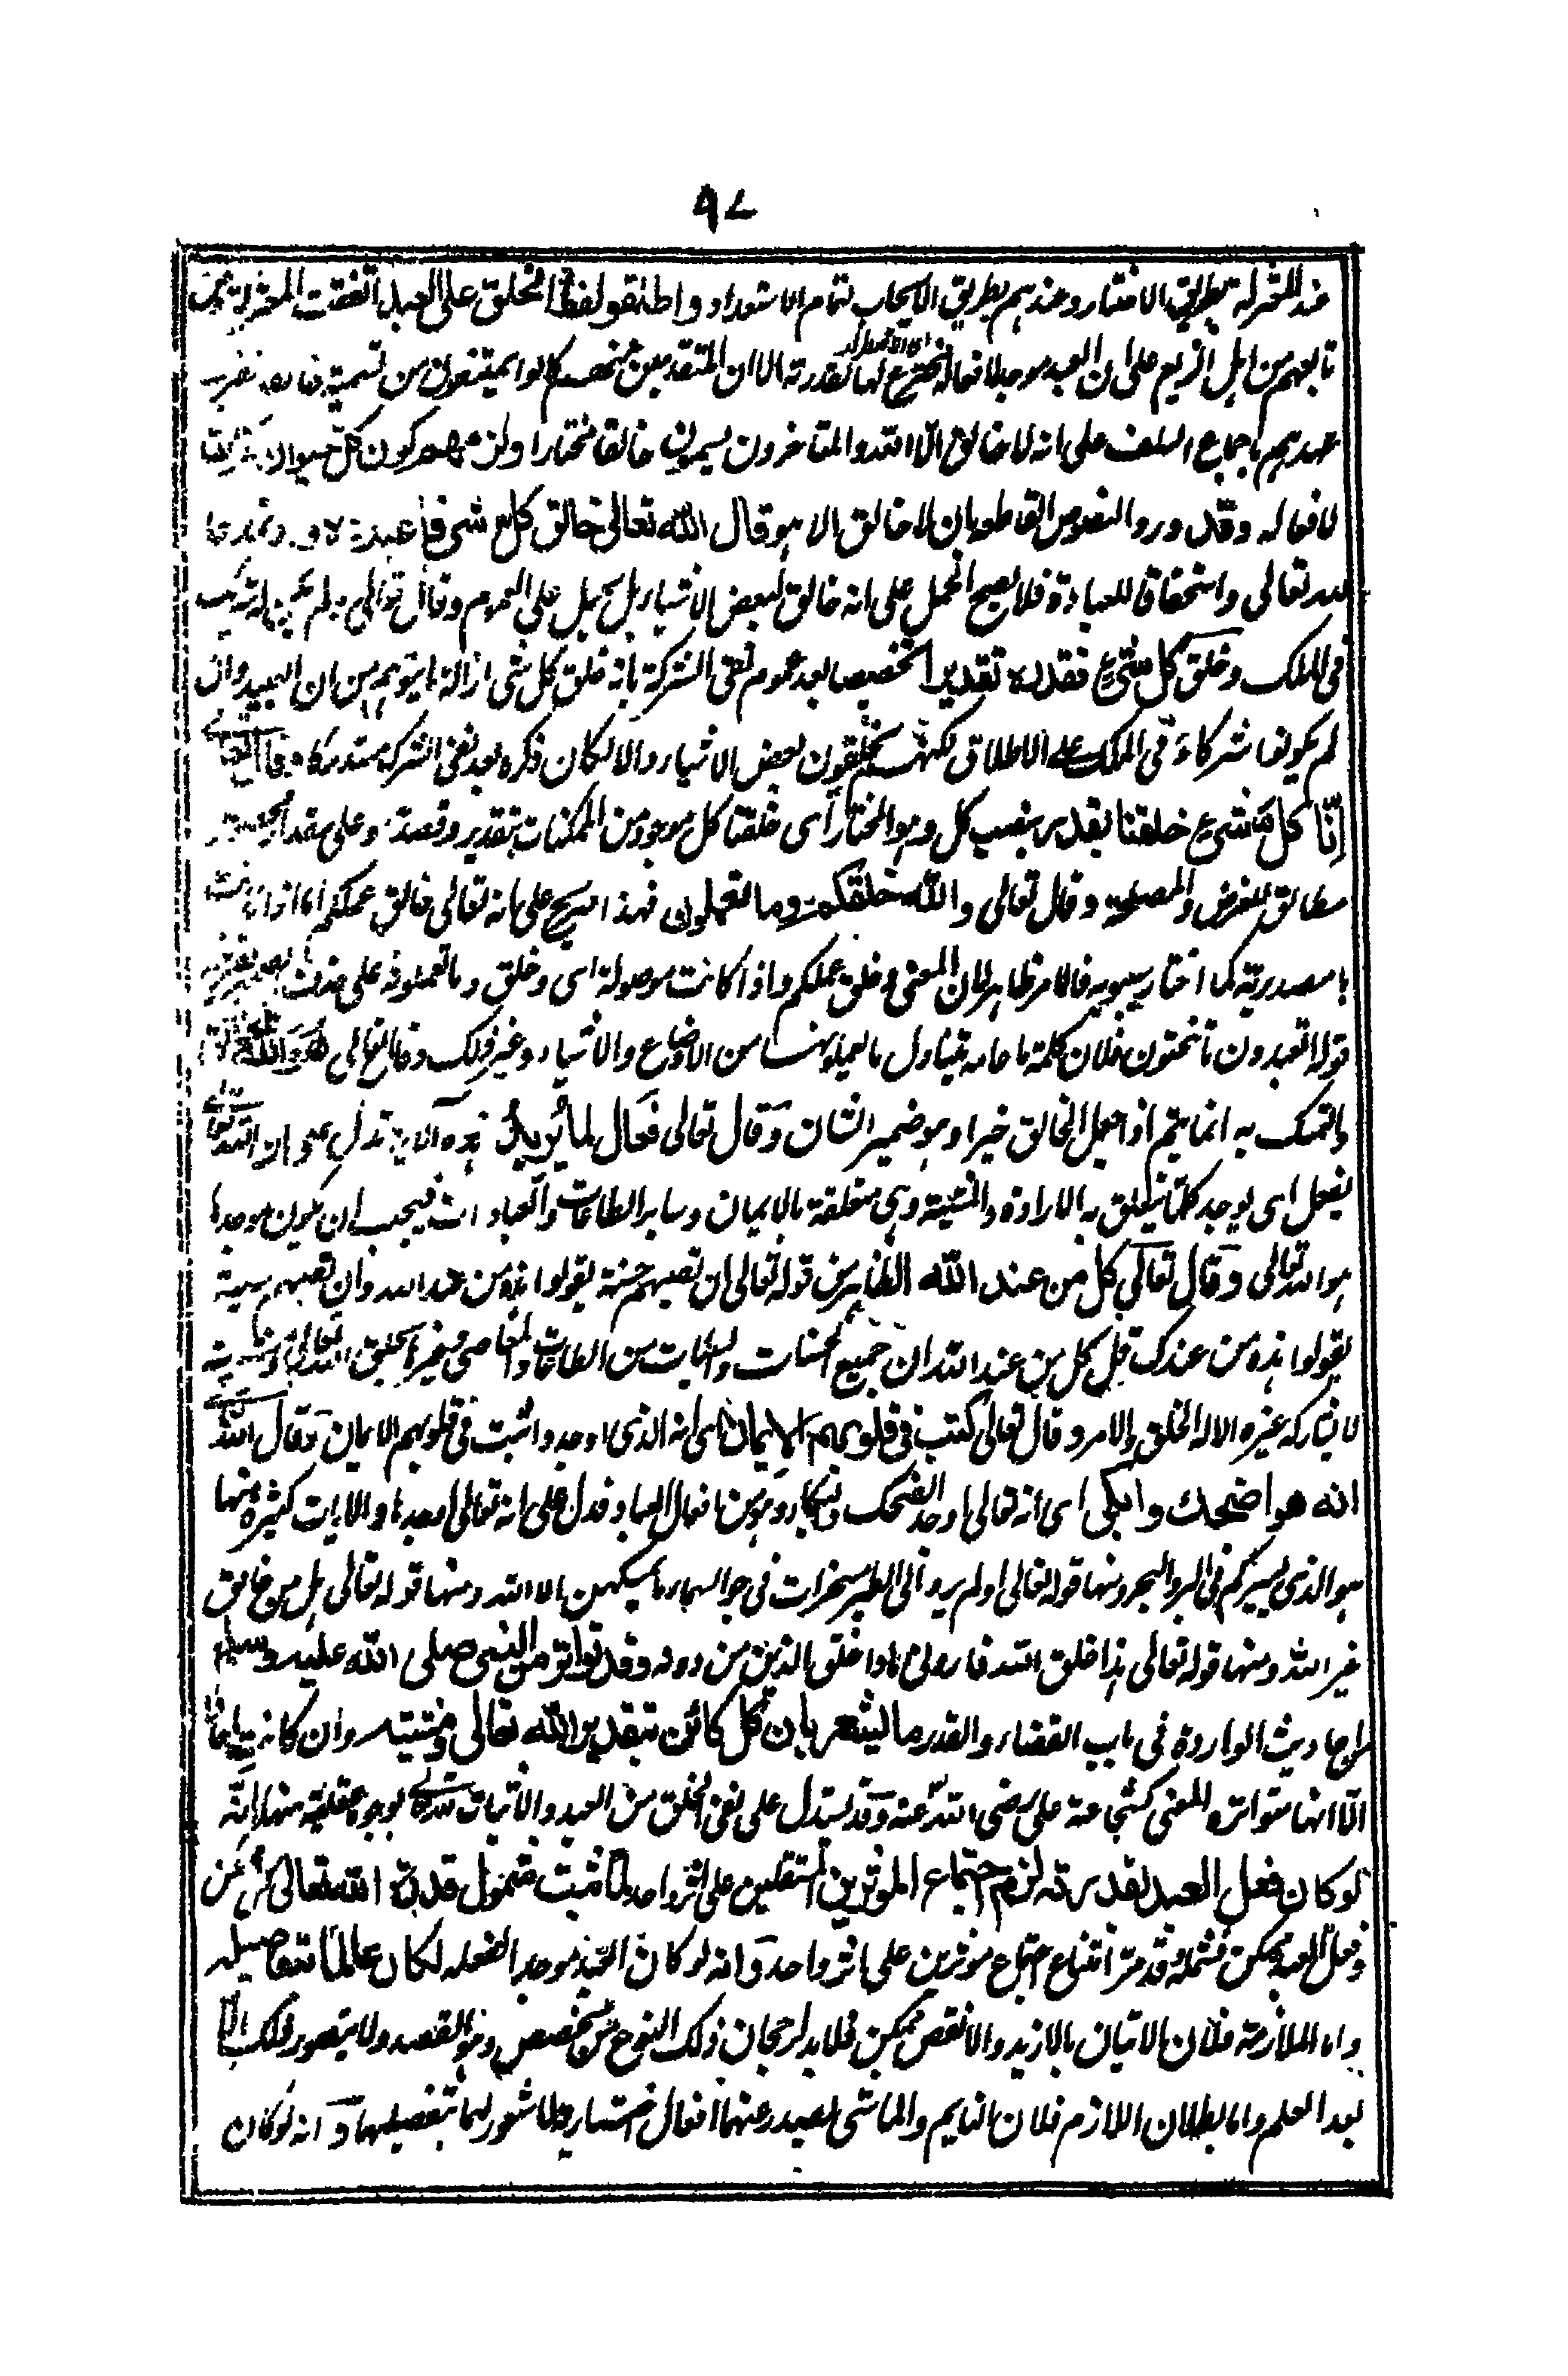 ٩٧
عند المعتزلة بطريق الاختيار وعندهم بطريق الايجاب بتمام الاستعداد واطلقوا لفظ الخلق على العبد اتفقت المعتزلة ومن
تابعهم من اهل الزيغ على ان العبد موجد لافعاله مخترع لها بقدرته الا ان المتقدمين منهم كانوا يمتنعون من تسميته خالقا لقرب
عهدهم باجماع السلف على انه لا خالق الا الله والمتاخرون يسمونه خالقا مختارا ولزمهم كون كل حيوان خالقا
لافعاله وقد ورد النصوص القاطعة بان لا خالق الا هو قال الله تعالى خالق كل شئ فاعبدوه
لله تعالى واستحقاقا للعبادة فلا يصح الحمل على انه خالق لبعض الاشياء بل يحمل على العموم وقال تعالى ولم يكن له شريك
فى الملك وخلق كل شئ فقدره تقديرا تخصيصا بعد عموم نفى الشركة بانه خلق كل شئ ازالة لما يتوهم من ان العبيد وان
لم يكونوا شركاء فى الملك على الاطلاق لكنهم يخلقون بعض الاشياء والا لكان ذكره بعد نفى الشركة مستدركا وقال تعالى
إنّا كل شئ خلقنا بقدر بنصب كل وهو المختار أى خلقنا كل موجود من الممكنات بتقدير وقصد وعلى مقدار مخصوص
مطابق للغرض والمصلحة وقال تعالى والله خلقكم وما تعملون فهذا صريح على انه تعالى خالق عملكم اما اذا كانت
ما مصدرية كما اختار سيبويه فالامر ظاهر لان المعنى وخلق عملكم واذا كانت موصولة اى وخلق وما تعملونه على حذف الضمير بقرينة
قوله اتعبدون ما تنحتون فلان كلمة ما عامة يتناول ما يعملونه من الاوضاع والاشياء وغير ذلك وقال تعالى هو الله الخالق
والتمسك به انما يتم اذا جعل الخالق خبرا وهو ضمير الشان وقال تعالى فعال لما يريد هذه الاية تدل على ان الله تعالى
يفعل اى يوجد كلما يتعلق به الارادة والمشيئة وهى متعلقة بالايمان وساير الطاعات والعبادات فيجب ان يكون موجدها
هو الله تعالى وقال تعالى كل من عند الله الظاهر من قوله تعالى ان تصبهم حسنة يقولوا هذه من عند الله وان تصبهم سيئة
يقولوا هذه من عندك قل كل من عند الله ان جميع الحسنات والسيئات من الطاعات والمعاصى وغيرها بخلق الله تعالى ومشيته
لا يشاركه غيره الا له الخلق والامر وقال تعالى كتب فى قلوبهم الايمان اى انه الذى اوجد واثبت فى قلوبهم الايمان وقال الله تعالى
انه هو اضحك وابكى اى انه تعالى اوجد الضحك والبكاء وهو من افعال العباد فدل على انه تعالى اوجدها والايات كثيرة منها
هو الذى يسيركم فى البر والبحر ومنها قوله تعالى اولم يروا الى الطير مسخرات فى جو السماء ما يمسكهن الا الله ومنها قوله تعالى هل من خالق
غير الله ومنها قوله تعالى هذا خلق الله فارونى ماذا خلق الذين من دونه وقد تواتر من النبى صلى الله عليه وسلم
الاحاديث الواردة فى باب القضاء والقدر ما يشعر بان كل كائن بتقدير الله تعالى ومشيته وان كانت احادا
الّا انها متواتره المعنى كشجاعة على رضى الله عنه وقد يستدل على نفى الخلق من العبد والاثبات لله تعالى بوجوه عقلية منها انّه
لو كان فعل العبد بقدرته لزم اجتماع المؤثرين المستقلين على اثر واحد لما ثبت شمول قدرة الله تعالى كل ممكن
وفعل العبد ممكن فشمله وقد مرّ امتناع اجتماع مؤثرين على اثر واحد وانه لو كان العبد موجدا لفعله لكان عالما بتفاصيله
واما الملازمة فلان الاتيان بالازيد والانقص ممكن فلابد لرجحان ذلك النوع من مخصص وهو القصد ولا يتصور ذلك الا
بعد العلم واما بطلان اللازم فلان النايم والماشى يصدر عنهما افعال اختيارية لا شعور لهما بتفصيلها وانه لو كان